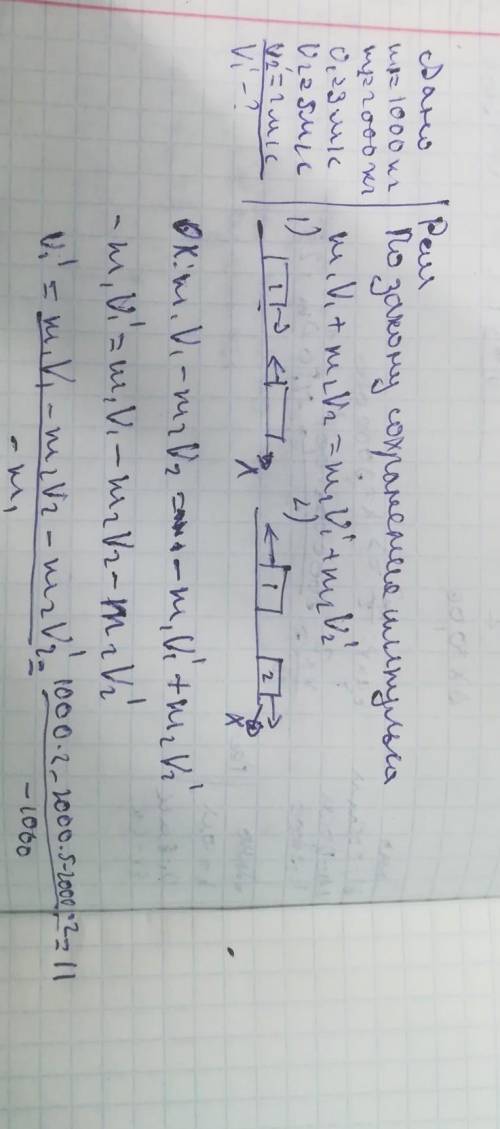 Дано
m₁=1000 кг
m₂=2000 кг
υ₁=3 м/с
υ₂=5 м/с
υ₂'=2 м/с
V₁' - ?
Реш
По закону сохранения импульса
m₁V₁ + m₂V₂ = m₁V₁' + m₂V₂'
1) 2)
1 1 2
X X
OX: m₁V₁ - m₂V₂ = - m₁V₁' + m₂V₂'
- m₁V₁' = m₁V₁ - m₂V₂ - m₂V₂'
V₁' = m₁V₁ - m₂V₂ - m₂V₂' = 1000·2 - 2000·5 - 2000·2 = 11
- m₁ -1000